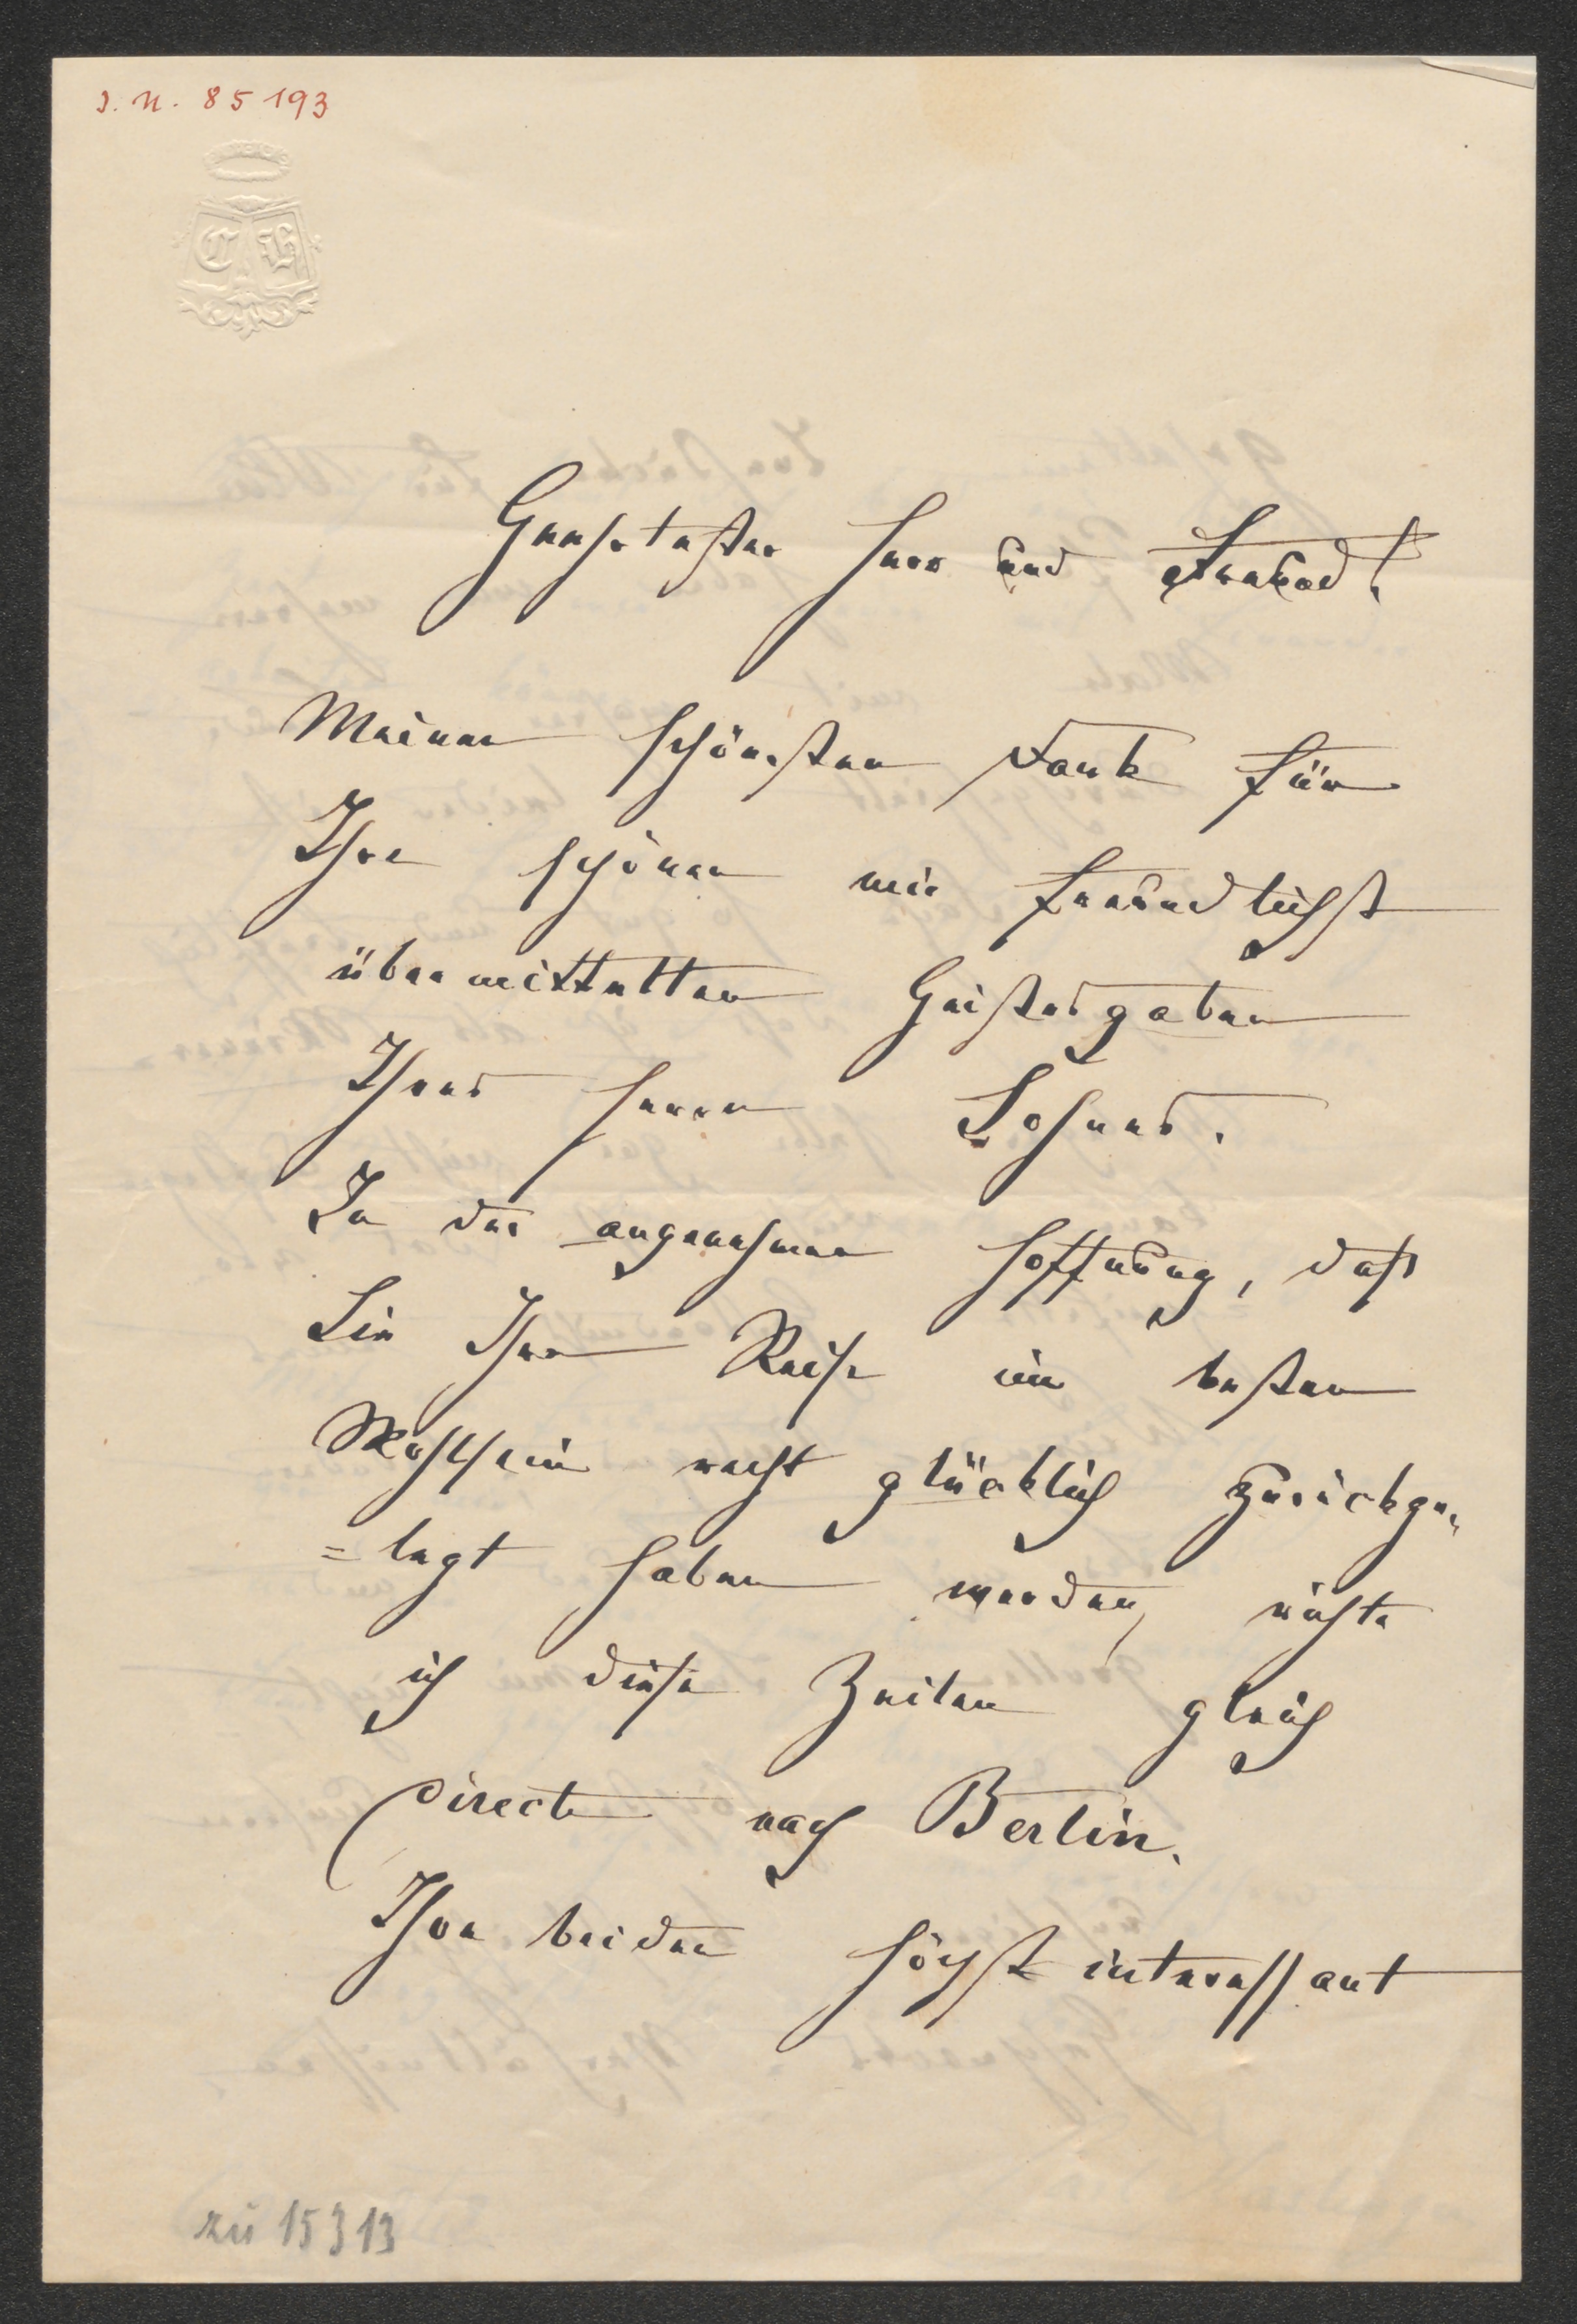 I. N. 85193
C H
Geehrtester Herr und Freund!
Meinen schönsten Dank für
Ihre schönen mir freundlichst
übermittelten Geistesgaben
Ihres Herrn Sohnes.
In der angenehmen Hoffnung, daß
Sie Ihre Reise im besten
Wohlsein recht glücklich zurückge¬
=legt haben werden, richte
ich diese Zeilen gleich
direct nach Berlin.
Ihre beiden höchst interessant
zu 15313